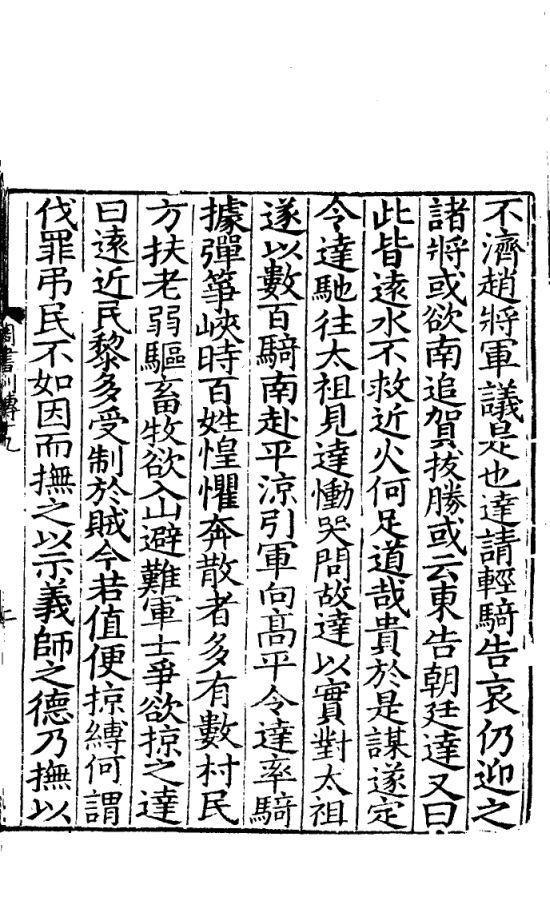 不濟趙將軍議是也達請輕騎告哀仍迎之
諸將或欲南追賀拔勝或云東告朝廷達又曰
此皆遠水不救近火何足道哉貴於是謀遂定
令達馳往太祖見達慟哭問故達以實對太祖
遂以數百騎南赴平涼引軍向髙平令達率騎
據彈箏峽時百姓惶懼奔散者多有數村民
方扶老弱驅畜牧欲入山避難軍士爭欲掠之達
曰遠近民黎多受制於賊今若值便掠縛何謂
伐罪弔民不如因而撫之以示義師之德乃撫以
周書列傳九